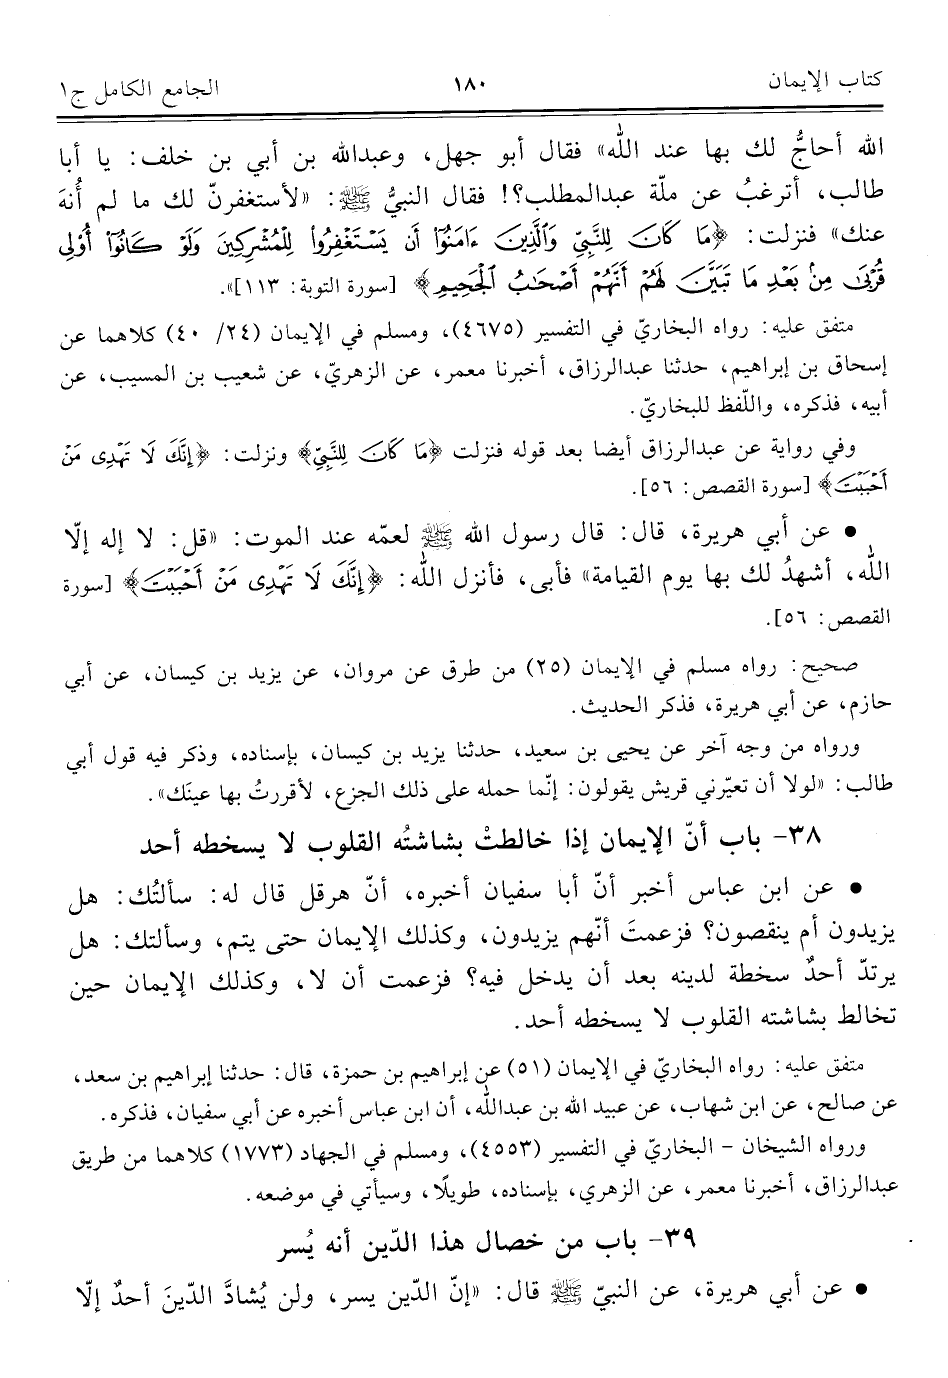 كتاب الإيمان ١٨٠ الجامع الكامل ج١
الله أحاجُّ لك بها عند اللّه» فقال أبو جهل، وعبدالله بن أبي بن خلف: يا أبا
طالب، أترغبُ عن ملّة عبدالمطلب؟! فقال النبيُّ ﷺ: «لأستغفرنّ لك ما لم أُنهَ
عنك» فنزلت: ﴿مَا كَانَ لِلنَّبِيِّ وَالَّذِينَ ءَامَنُوٓا۟ أَن يَسْتَغْفِرُوا۟ لِلْمُشْرِكِينَ وَلَوْ كَانُوٓا۟ أُو۟لِى
قُرْبَىٰ مِنۢ بَعْدِ مَا تَبَيَّنَ لَهُمْ أَنَّهُمْ أَصْحَٰبُ الْجَحِيمِ﴾ [سورة التوبة: ١١٣]».
متفق عليه: رواه البخاريّ في التفسير (٤٦٧٥)، ومسلم في الإيمان (٢٤/ ٤٠) كلاهما عن
إسحاق بن إبراهيم، حدثنا عبدالرزاق، أخبرنا معمر، عن الزهريّ، عن شعيب بن المسيب، عن
أبيه، فذكره، واللّفظ للبخاريّ.
وفي رواية عن عبدالرزاق أيضا بعد قوله فنزلت ﴿مَا كَانَ لِلنَّبِيِّ﴾ ونزلت: ﴿إِنَّكَ لَا تَهْدِى مَنْ
أَحْبَبْتَ﴾ [سورة القصص: ٥٦].
● عن أبي هريرة، قال: قال رسول الله ﷺ لعمّه عند الموت: «قل: لا إله إلّا
اللّه، أشهدُ لك بها يوم القيامة» فأبى، فأنزل اللّه: ﴿إِنَّكَ لَا تَهْدِى مَنْ أَحْبَبْتَ﴾ [سورة
القصص: ٥٦].
صحيح: رواه مسلم في الإيمان (٢٥) من طرق عن مروان، عن يزيد بن كيسان، عن أبي
حازم، عن أبي هريرة، فذكر الحديث.
ورواه من وجه آخر عن يحيى بن سعيد، حدثنا يزيد بن كيسان، بإسناده، وذكر فيه قول أبي
طالب: «لولا أن تعيّرني قريش يقولون: إنّما حمله على ذلك الجزع، لأقررتُ بها عينَك».
٣٨- باب أنّ الإيمان إذا خالطتْ بشاشتُه القلوب لا يسخطه أحد
● عن ابن عباس أخبر أنّ أبا سفيان أخبره، أنّ هرقل قال له: سألتُك: هل
يزيدون أم ينقصون؟ فزعمتَ أنّهم يزيدون، وكذلك الإيمان حتى يتم، وسألتك: هل
يرتدّ أحدٌ سخطة لدينه بعد أن يدخل فيه؟ فزعمت أن لا، وكذلك الإيمان حين
تخالط بشاشته القلوب لا يسخطه أحد.
متفق عليه: رواه البخاريّ في الإيمان (٥١) عن إبراهيم بن حمزة، قال: حدثنا إبراهيم بن سعد،
عن صالح، عن ابن شهاب، عن عبيد الله بن عبداللّه، أن ابن عباس أخبره عن أبي سفيان، فذكره.
ورواه الشيخان - البخاريّ في التفسير (٤٥٥٣)، ومسلم في الجهاد (١٧٧٣) كلاهما من طريق
عبدالرزاق، أخبرنا معمر، عن الزهري، بإسناده، طويلًا، وسيأتي في موضعه.
٣٩- باب من خصال هذا الدّين أنه يُسر
● عن أبي هريرة، عن النبيّ ﷺ قال: «إنّ الدّين يسر، ولن يُشادَّ الدّينَ أحدٌ إلّا